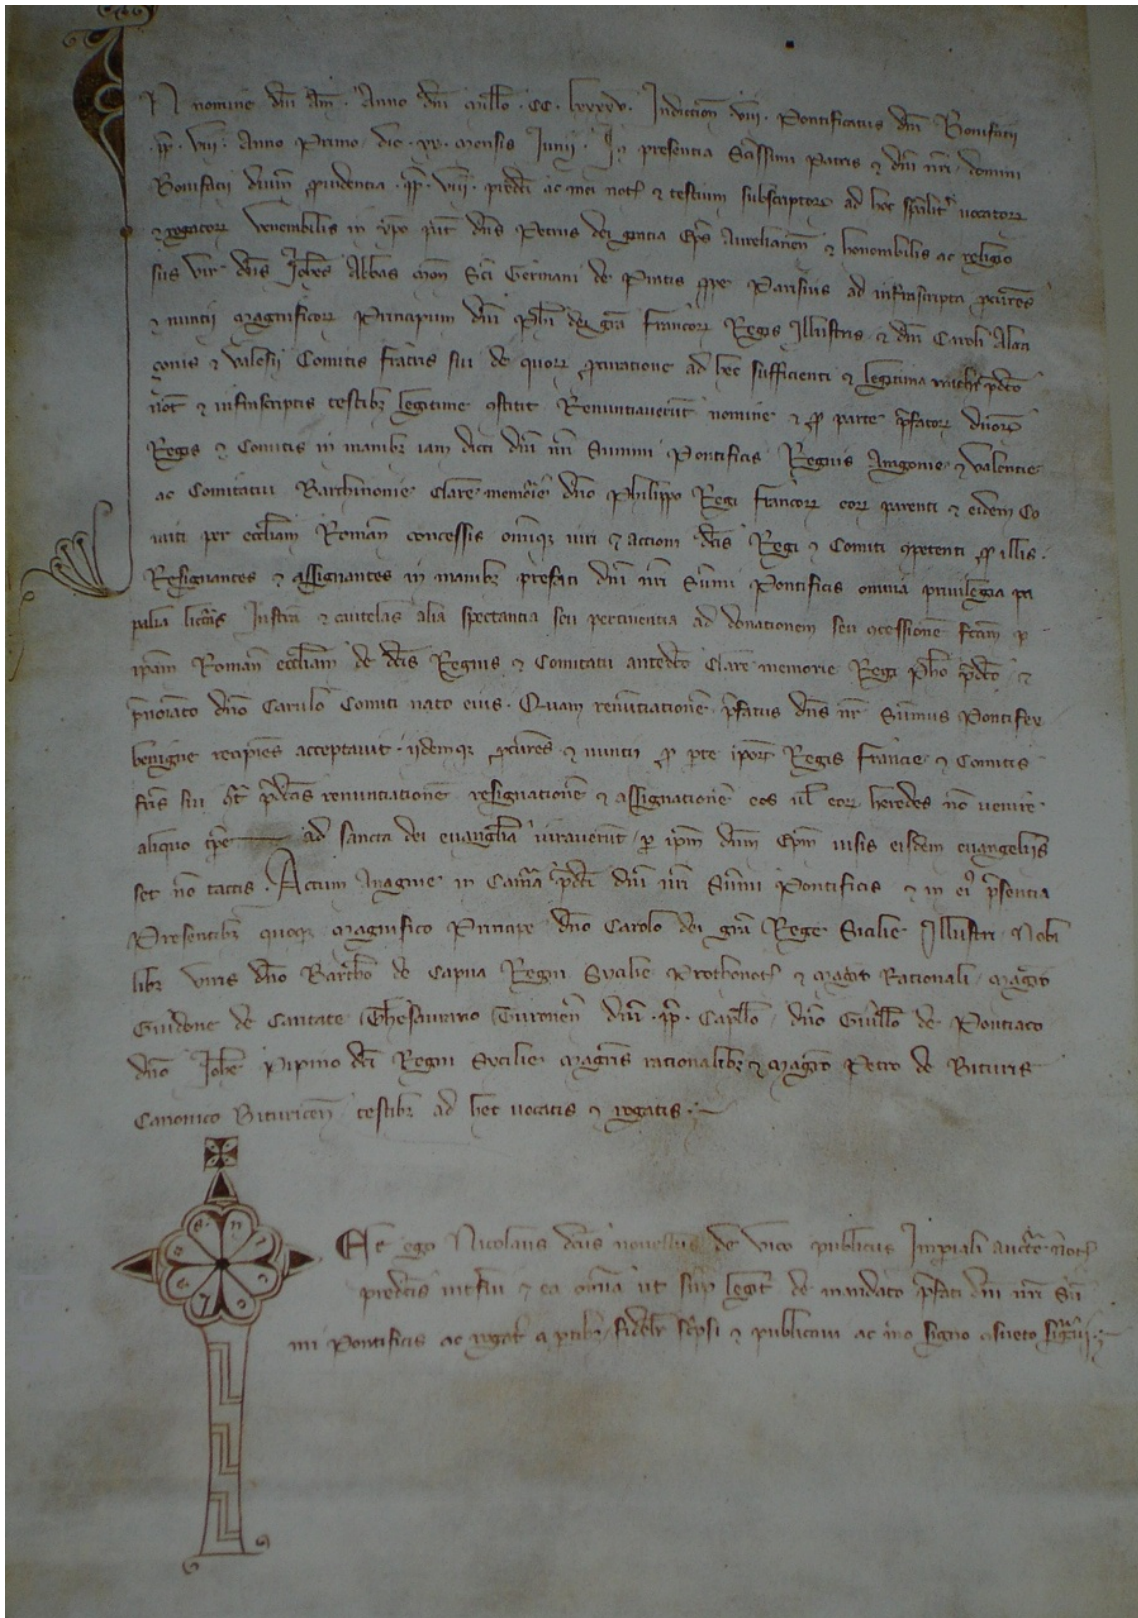 IN nomine dni Am̅. Anno dni millo. CC. lxxxxv. Indiction viii. Pontificatus dni Bonifacii
.pp. viii. Anno Primo. die. xx. mensis Junii. In presentia Scissimi Patris & dni nri domini
Bonifacii divina providentia .pp. viii. predci ac mei not & testium subscriptor ad hec specialit vocator
& rogator venerabilis in xpo pat dns Petrus dei gratia Eps Aurelianen & honorabilis ac religio
sus vir dns Johes Abbas mon Sci Germani de Pratis prope Parisius ad infrascripta procures
& nuntii magnificor Principum dni Phi dei gra Francor Regis Illustris & dni Caroli Alan
conis & Valesii Comitis fratris sui de quor procuratione ad hec sufficienti & legitima michi pdco
not & infrascriptis testibz legitime constitit Renuntiaverut nomine & pro parte pfator duor
Regis & Comitis in manibz iam dicti dni nri Summi Pontificis Regnis Aragonie & Valentie
ac Comitatui Barchinonie clare memorie dno Philippo Regi Francor eor parenti & eidem Co
miti per eccliam Roman concessis omnique iuri & action dcis Regi & Comiti competenti pro illis.
Resignantes & assignantes in manibz prefati dni nri Sumi Pontificis omnia privilegia pa
palia licteras Instra & cautelas alia spectantia seu pertinentia ad donationem seu concessione fcam p
ipam Roman eccliam de dcis Regnis & Comitatu antedco clare memorie Regi Pho pdco &
pnotato dno Carulo Comiti nato eius. Quam renuntiatione pfatus dns nr Summus Pontifex
benigne recipies acceptavit. iidemque procures & nuntii pro pte ipor Regis Francie & Comitis
fris sui qt pdcas renuntiatione resignatione & assignatione eos vl eor heredes no venire
aliquo tpe ad sancta dei evanglia iuraverut p ipm dnm Epm visis eisdem evangeliis
set no tactis. Actum Anagnie in Cama pdci dni nri Summi Pontificis & in ei psentia
Presentibz quoque magnifico Principe dno Carolo dei gra Rege Sicilie Illustri Nobi
libz viris dno Bartho de Capua Regni Sycilie Prothonot & magro Rationali magro
Guidone de Caritate Thesaurario Turonen dni .pp. Capllo, dno Guillo de Pontiaco
dno Johe Pipino dci Regni Sycilie magris rationalibz & magro Petro de Bituris
Canonico Bituricen testibz ad hec vocatis & rogatis.
Et ego Nicolaus dcus novellus de Vico publicus Imperiali auctte not
predcis intfui & ea omia ut sup legit de mandato pfati dni nri Sum
mi Pontificis ac rogat a ptibz fidelit scpsi & publicavi ac meo signo consueto signavi.